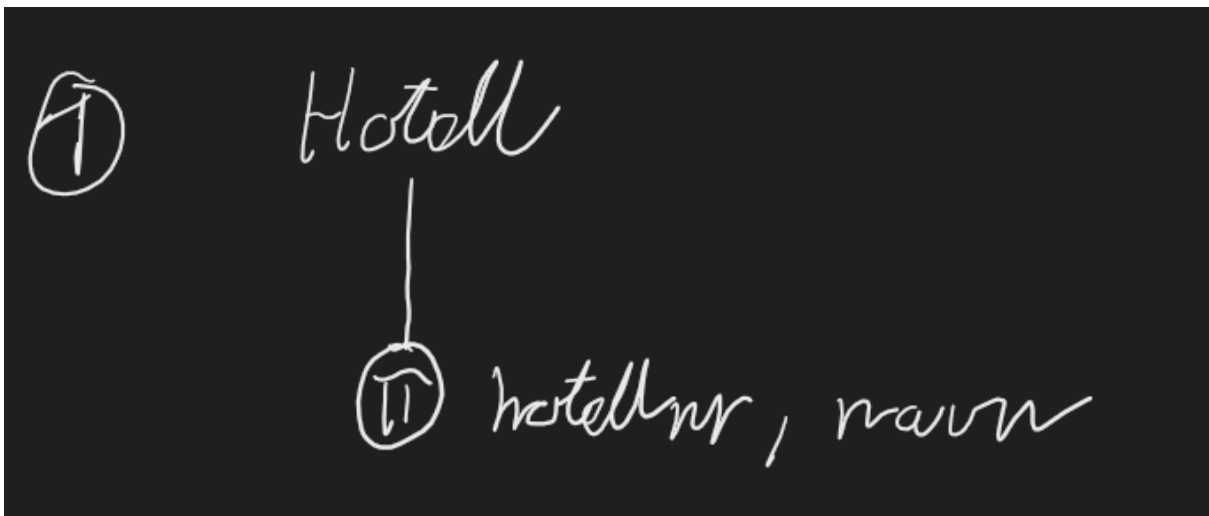 ① Hotell
π hotellnr, navn